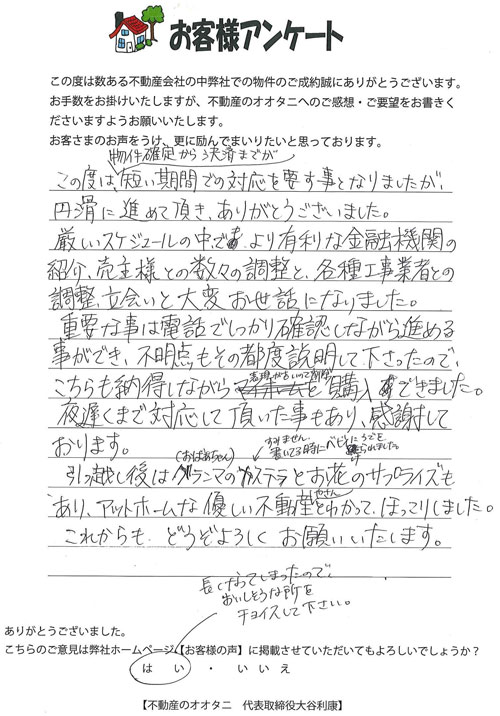 お客様アンケート
この度は数ある不動産会社の中弊社での物件のご成約誠にありがとうございます。
お手数をお掛けいたしますが、不動産のオオタニへのご感想・ご要望をお書きく
ださいますようお願いいたします。
お客さまのお声をうけ、更に励んでまいりたいと思っております。
物件確定から決済までが
この度は、短い期間での対応を要す事となりましたが、
円滑に進めて頂き、ありがとうございました。
厳しいスケジュールの中でも、より有利な金融機関の
紹介、売主様との数々の調整と、各種工事業者との
調整、立会いと大変お世話になりました。
重要な事は電話でしっかり確認しながら進める
事ができ、不明点もその都度説明して下さったので、
こちらも納得しながら 購入できました。
夜遅くまで対応して頂いた事もあり、感謝して
おります。
すみません。
書いてる時にベビにうでを
(おばあちゃん)
引っ越し後はグランマのカステラとお花のサプライズも
あり、アットホームな優しい不動産やさんとわかって、ほっこりしました。
これからも、どうぞよろしくお願いいたします。
長くなってしまったので、
おいしそうな所を
チョイスして下さい。
ありがとうございました。
こちらのご意見は弊社ホームページ【お客様の声】に掲載させていただいてもよろしいでしょうか？
はい・いいえ
【不動産のオオタニ 代表取締役大谷利康】